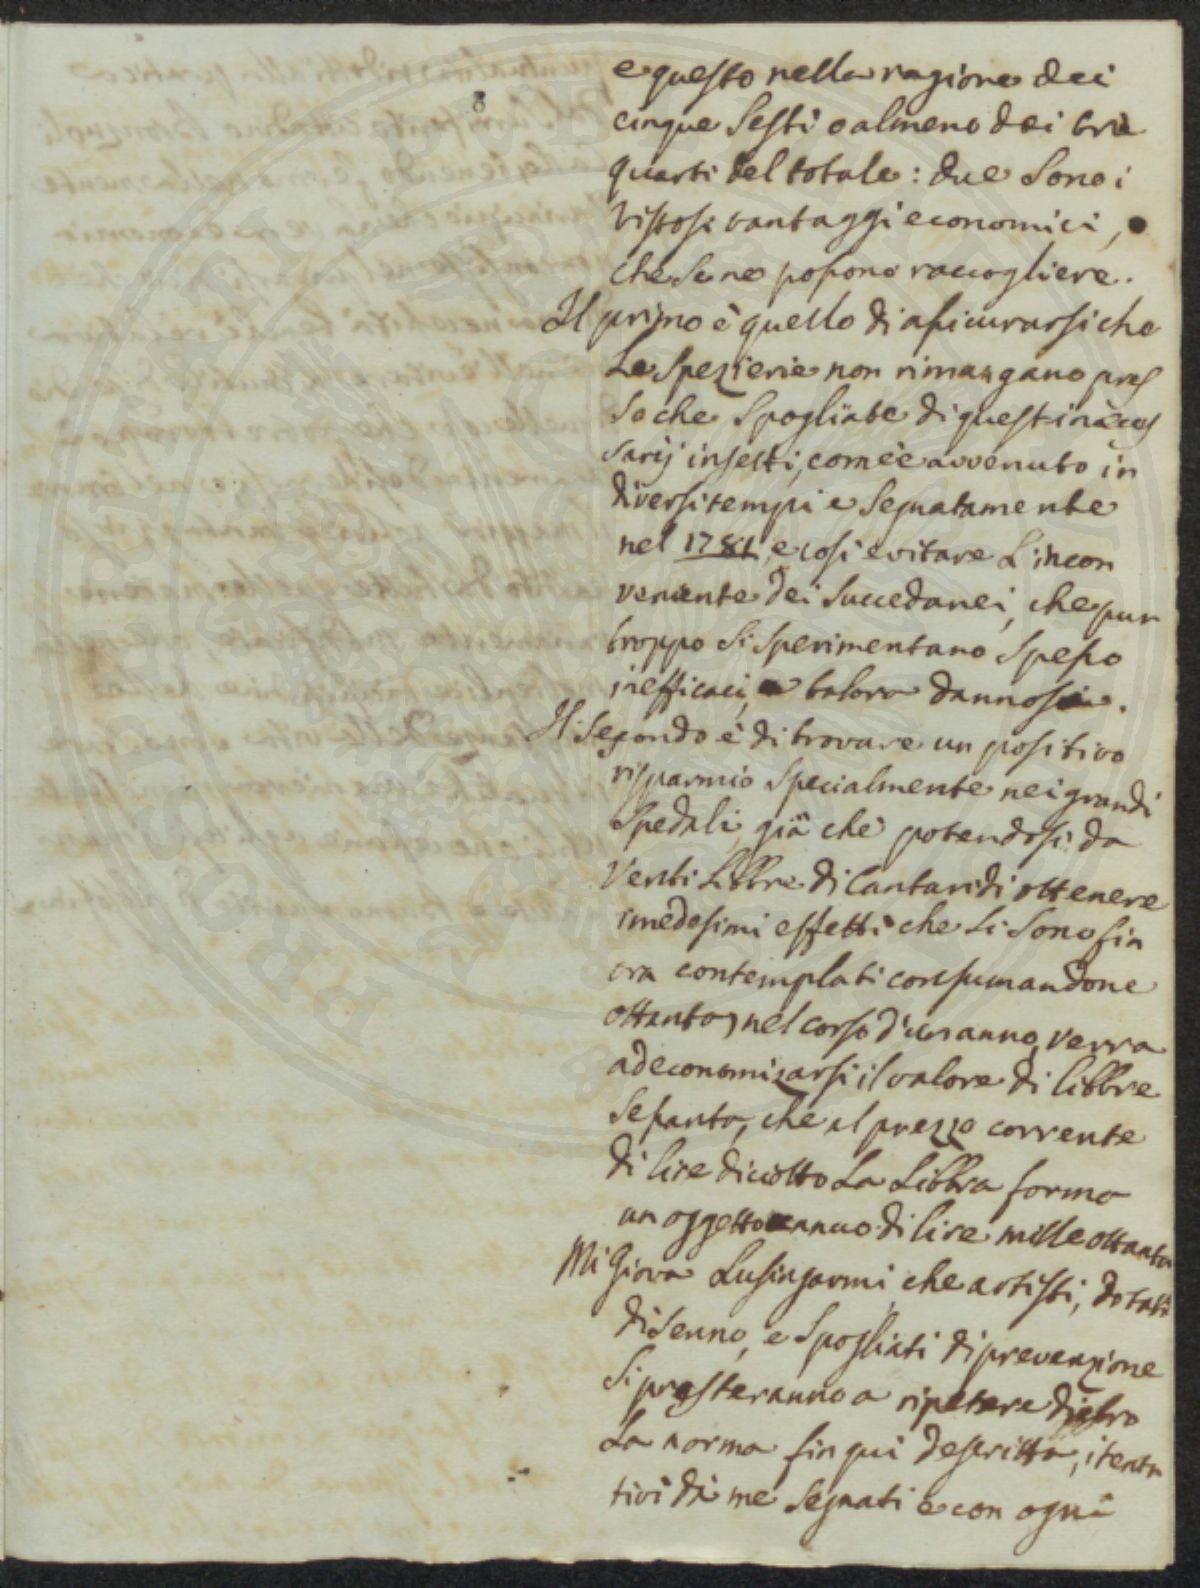 e questo nella ragione dei
cinque Sesti o almeno dei trè
quarti del totale: due Sono i
vistosi vantaggi economici,
che Se ne possono raccogliere.
Il primo è quello di assicurarsi che
Le Spezierie non rimangano pres
So che Spogliate di questi necess
sarij insetti, com'è avvenuto in
diversi tempi e Segnatamente
nel 1781, e così evitare L'incon
veniente dei Succedanei, che pur
troppo Si Sperimentano Spesso
inefficaci, e talora dannosi.
Il Segondo è di trovare un positivo
risparmio Specialmente nei grandi
Spedali, già che potendosi da
Venti Libbre di Cantaridi ottenere
i medesimi effetti che Li Sono fin
ora contemplati consumandone
ottanta nel corso d'un anno, verra
ad economizarsi il valore di libbre
Sessanta, che al prezzo corrente
di lire diciotto La Libbra forma
un oggetto annuo di lire mille ottanta
Mi Giova Lusingarmi che artisti, dotati
di Senno, e Spogliati di prevenzione
Si presteranno a ripetere dietro
La norma fin qui descritta, i tenta
tivi da me Segnati e con ogni